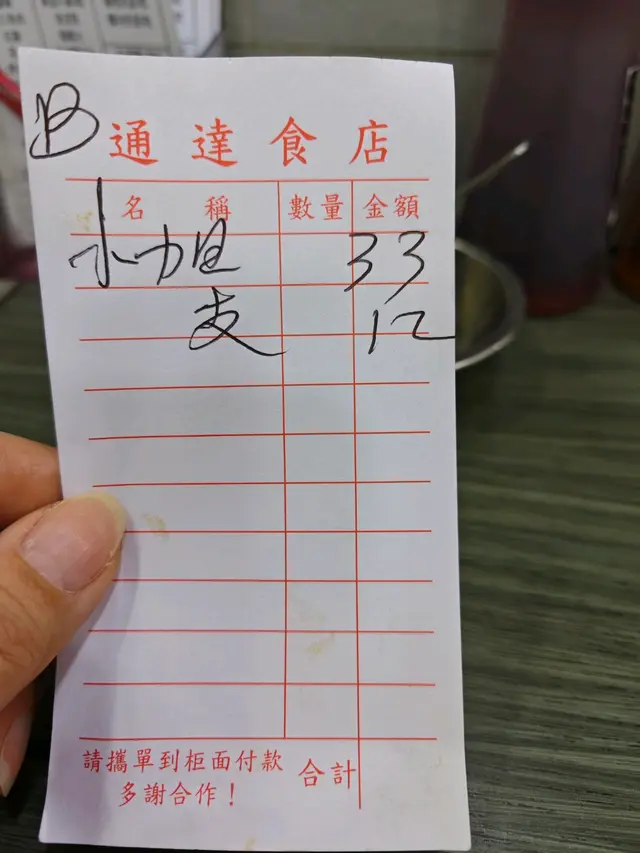 通達食店
名稱 數量 金額
33
支 12
請攜單到柜面付款
多謝合作！
合計